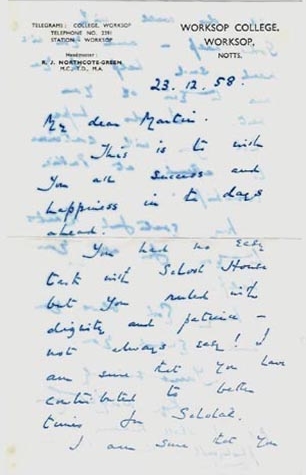 TELEGRAMS: COLLEGE, WORKSOP
TELEPHONE NO. 2391
STATION - WORKSOP
HEADMASTER:
R. J. NORTHCOTE-GREEN,
M.C., T.D., M.A.
WORKSOP COLLEGE,
WORKSOP,
NOTTS.
23.12.58.
My dear Martin.
This is to wish
you all success and
happiness in the days
ahead.
You had no easy
task with School House
but you ruled with
dignity and patience -
not always easy! I
am sure that you have
contributed to better
times for School.
I am sure that you